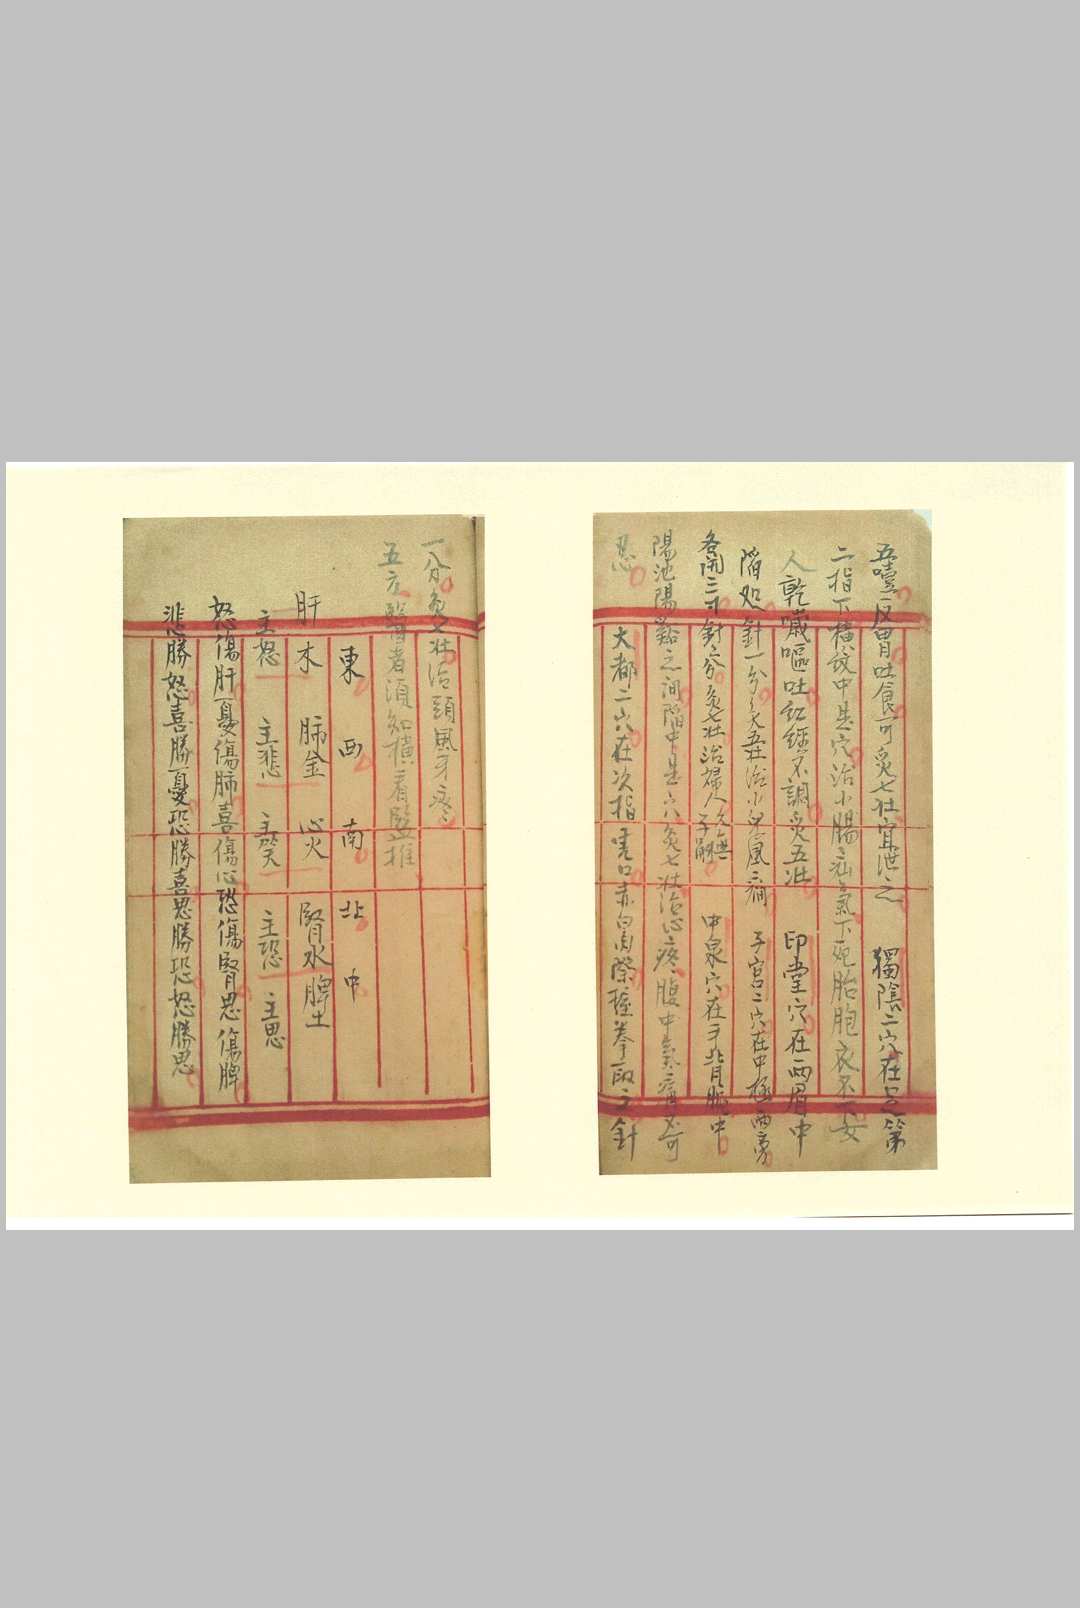 五噎反胃吐食可灸七壯宜泄之　獨陰二穴在足第
二指下橫紋中是穴治小腸疝氣下死胎胞衣不下女
人乾噦嘔吐紅經不調灸五壯　印堂穴在兩眉中
陷処針一分灸五壯治小兒風癇　子宮二穴在中極兩旁
各開三寸針二分灸七壯治婦人久無子嗣　中泉穴在手背腕中
陽池陽谿之間陷中是穴灸七壯治心疼腹中氣痛不可
忍
大都二穴在次指虎口赤白肉際握拳取之針
一分灸七壯治頭風牙疼
五方醫者須知橫看豎推
東　西　南　北　中
肝木　肺金　心火　腎水　脾土
主怒　主悲　主笑　主恐　主思
怒傷肝憂傷肺喜傷心恐傷腎思傷脾
悲勝怒喜勝憂恐勝喜思勝恐怒勝思